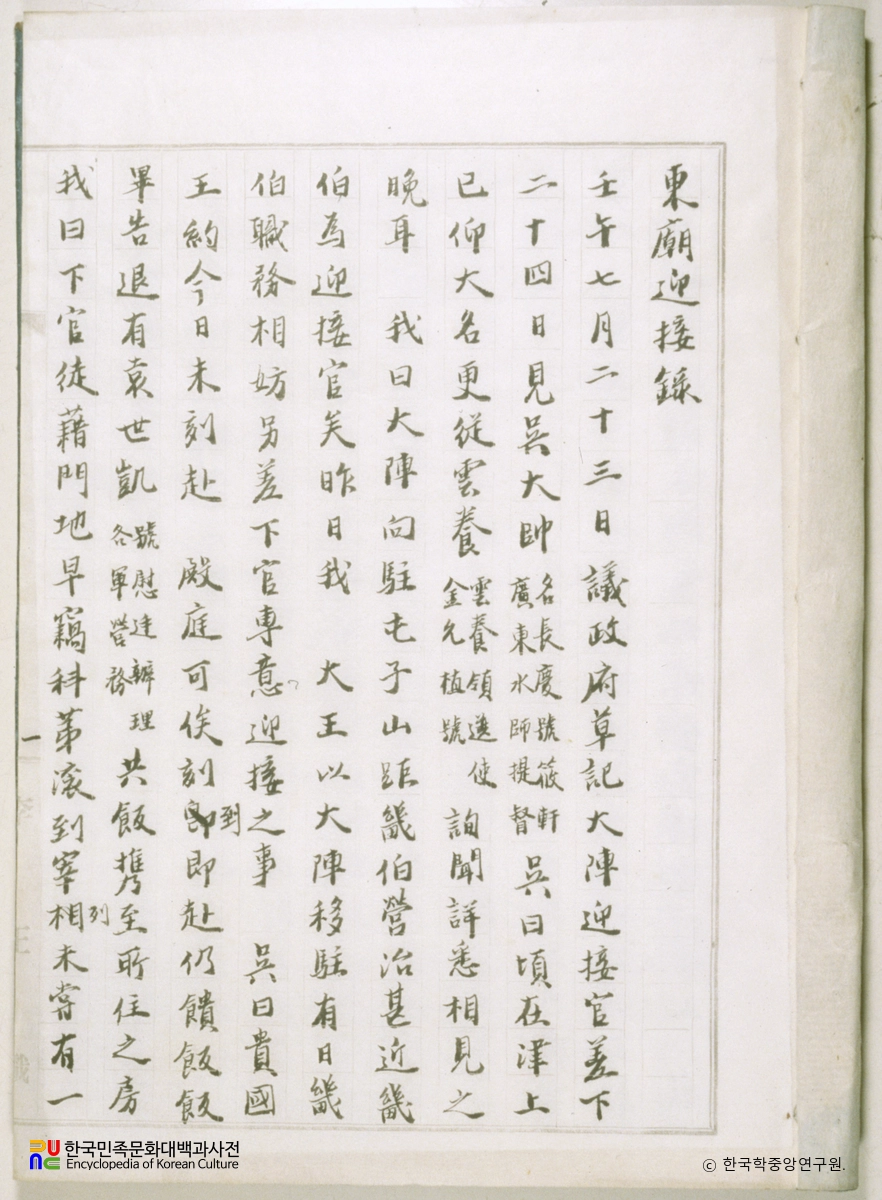 東廟迎接錄
壬午七月二十三日議政府草記大陣迎接官差下
二十四日見吳大帥名長慶號筱軒廣東水師提督吳曰頃在津上
已仰大名更從雲養雲養領選使金允植號詢聞詳悉相見之
晚耳 我曰大陣向駐屯子山距畿伯營治甚近畿
伯為迎接官矣昨日我 大王以大陣移駐有日畿
伯職務相妨另差下官專意迎接之事 吳曰貴國
王約今日未刻赴 殿庭可俟刻到即赴仍饋飯飯
畢告退有袁世凱號慰廷辦理各軍營務共飯携至所住之房
我曰下官徒藉門地早竊科第滾到宰列相未嘗有一
一
한국민족문화대백과사전
Encyclopedia of Korean Culture
© 한국학중앙연구원.